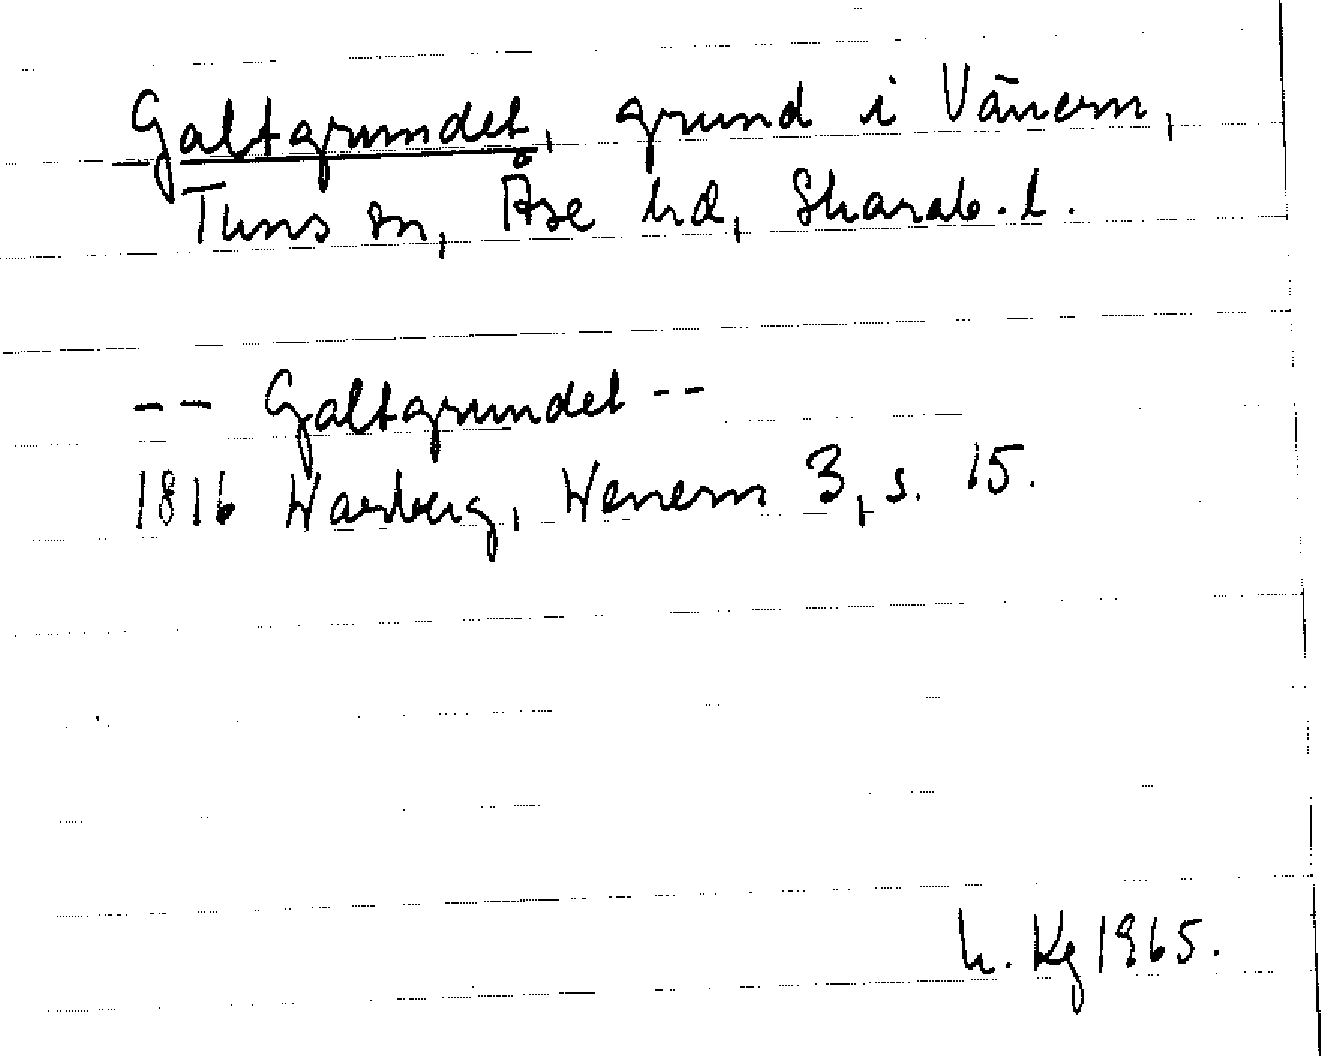 Galtgrundet, grund i Vänern,
Tuns sn, Åse hd, Skarab. l.
-- Galtgrundet --
1816 Warberg, Wenern 3, s. 15.
h. Kg 1965.